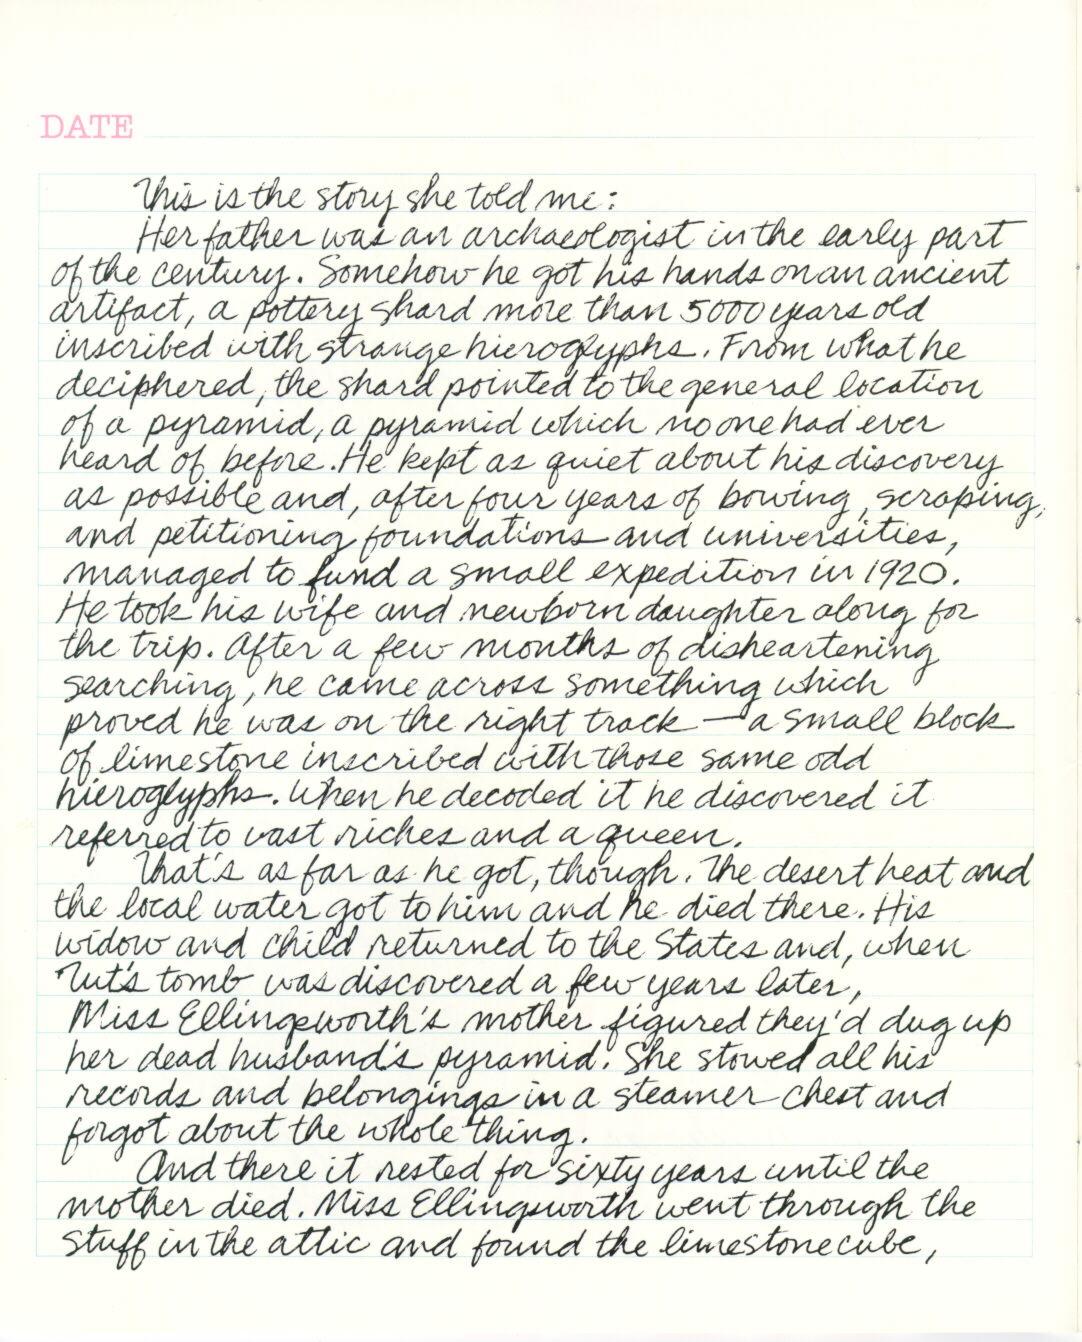 DATE
This is the story she told me:
Her father was an archaeologist in the early part
of the century. Somehow he got his hands on an ancient
artifact, a pottery shard more than 5000 years old
inscribed with strange hieroglyphs. From what he
deciphered, the shard pointed to the general location
of a pyramid, a pyramid which no one had ever
heard of before. He kept as quiet about his discovery
as possible and, after four years of bowing, scraping,
and petitioning foundations and universities,
managed to fund a small expedition in 1920.
He took his wife and newborn daughter along for
the trip. After a few months of disheartening
searching, he came across something which
proved he was on the right track — a small block
of limestone inscribed with those same odd
hieroglyphs. When he decoded it he discovered it
referred to vast riches and a queen.
That's as far as he got, though. The desert heat and
the local water got to him and he died there. His
widow and child returned to the States and, when
Tut's tomb was discovered a few years later,
Miss Ellingsworth's mother figured they'd dug up
her dead husband's pyramid. She stowed all his
records and belongings in a steamer chest and
forgot about the whole thing.
And there it rested for sixty years until the
mother died. Miss Ellingsworth went through the
stuff in the attic and found the limestone cube,